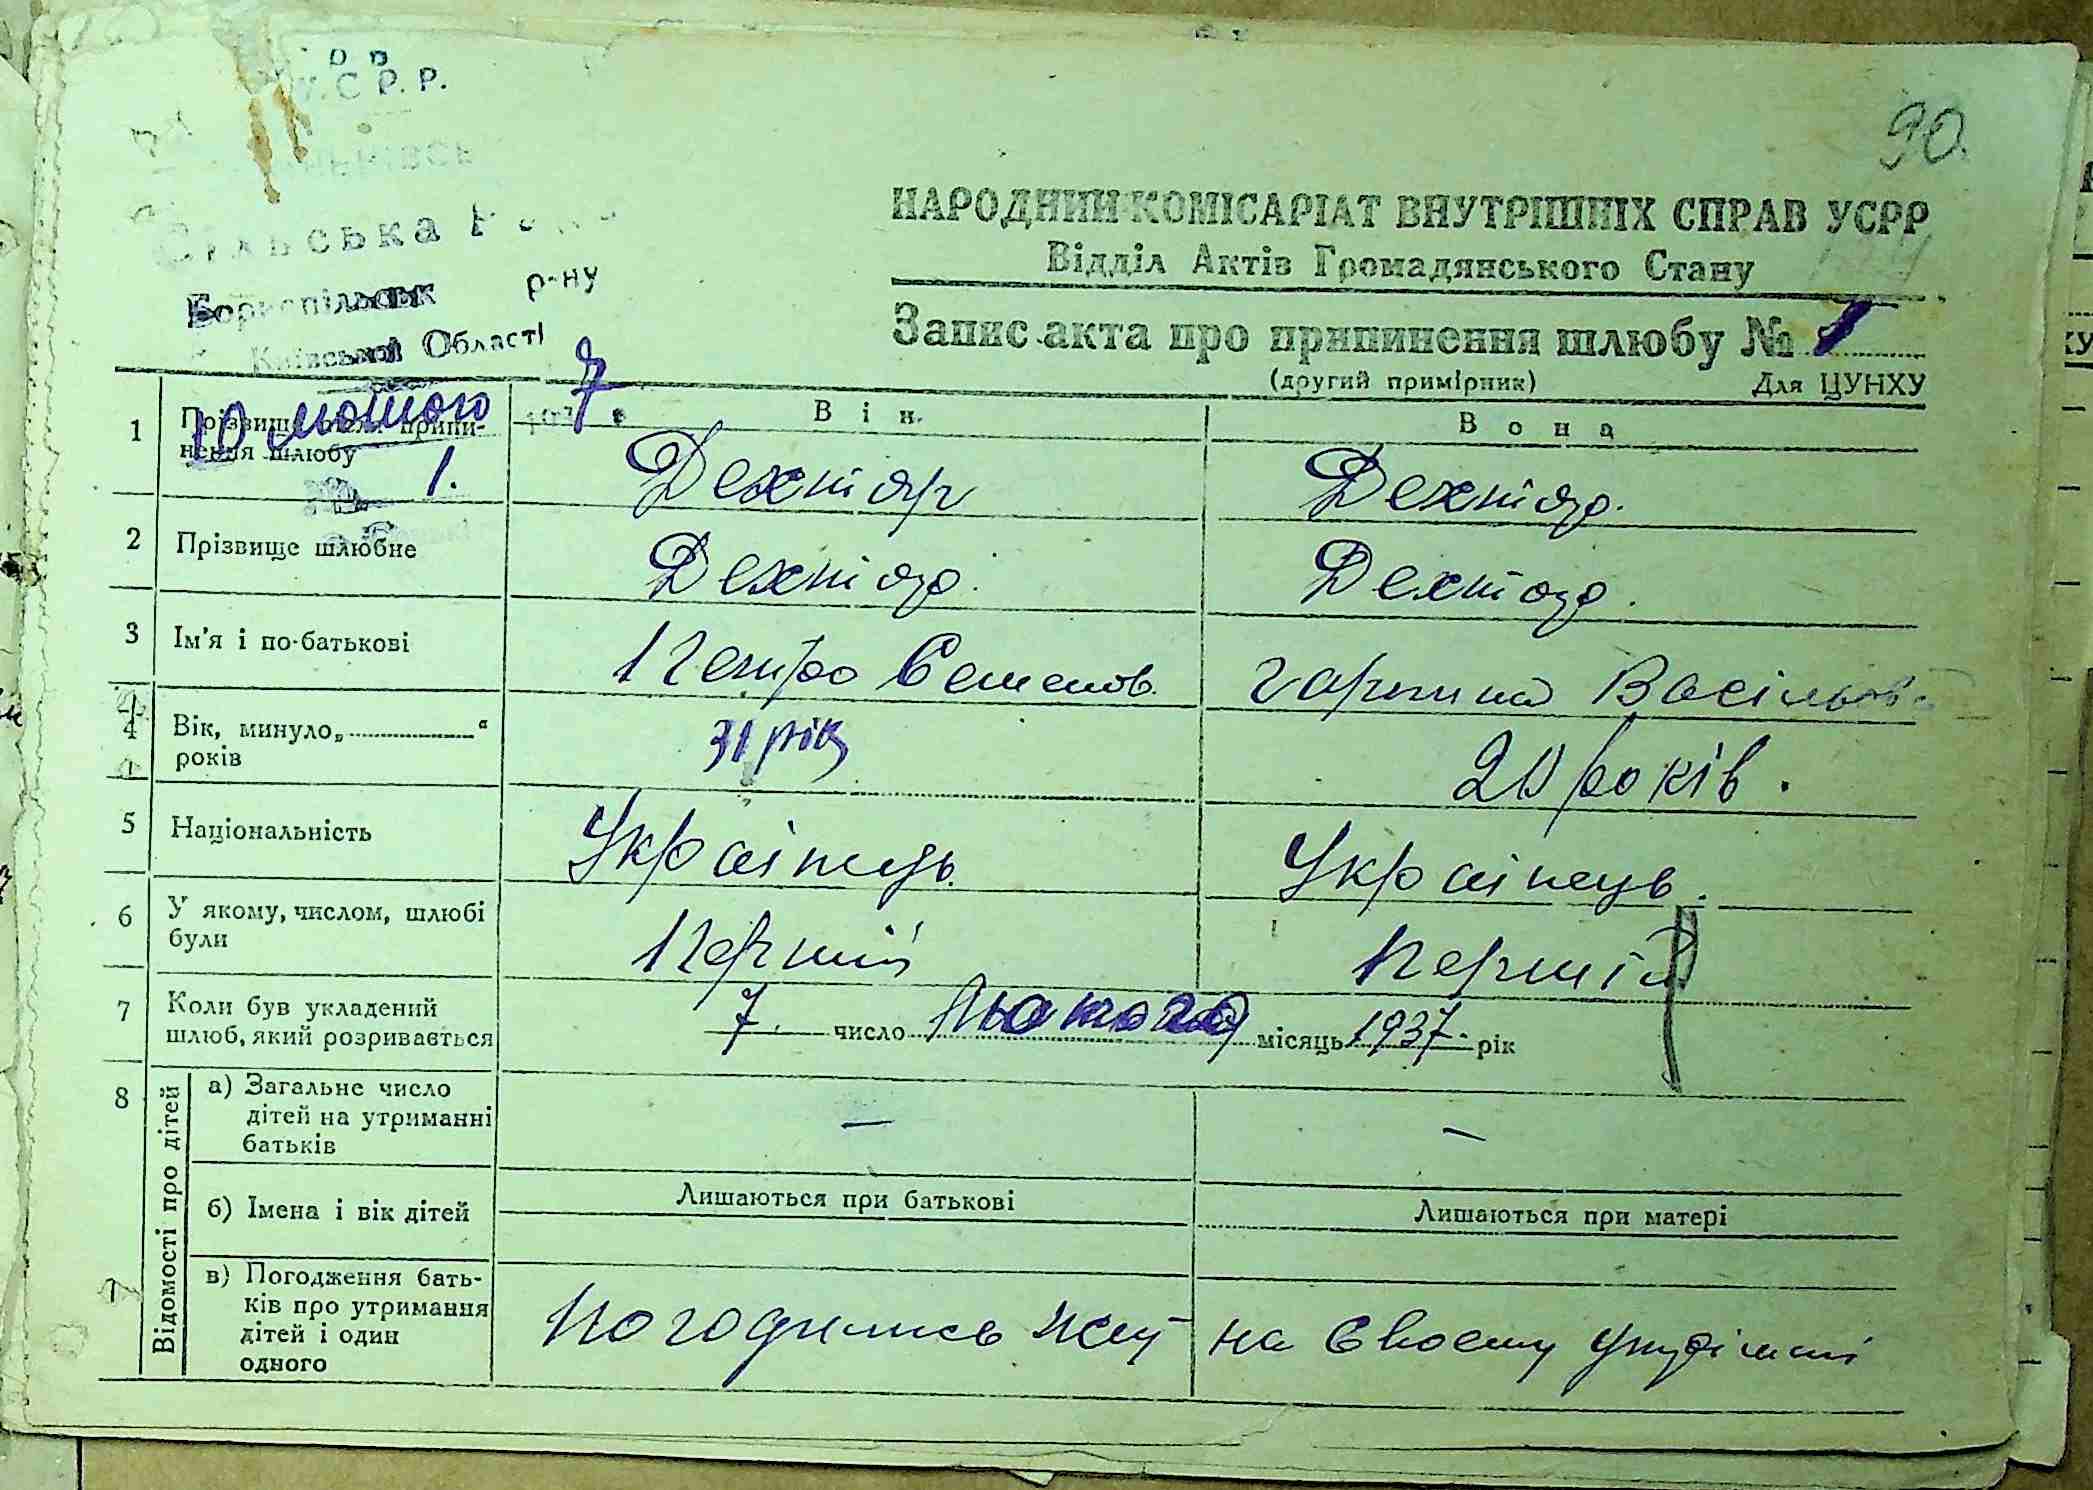 У.С.Р.Р.
90.
Сільська Рада
НАРОДНИЙ КОМІСАРІАТ ВНУТРІШНІХ СПРАВ УСРР
Відділ Актів Громадянського Стану
Бориспільськ р-ну
Київської Області
Запис акта про припинення шлюбу № 1
(другий примірник) Для ЦУНХУ
10 лютого 1937
№ 1.
Він Вона
1 Прізвище після припинення шлюбу Дехтяр Дехтяр.
2 Прізвище шлюбне Дехтяр. Дехтяр.
3 Ім'я і по-батькові Петро Семенов. Гарпина Васільов
4 Вік, минуло „ “ років 31 рік 20 років.
5 Національність Українець. Українець.
6 У якому, числом, шлюбі були Перший Перший
7 Коли був укладений шлюб, який розривається 7. число Лютого місяць 1937. рік
8 Відомості про дітей
а) Загальне число дітей на утриманні батьків — —
б) Імена і вік дітей Лишаються при батькові Лишаються при матері
в) Погодження батьків про утримання дітей і один одного Погодились на своему